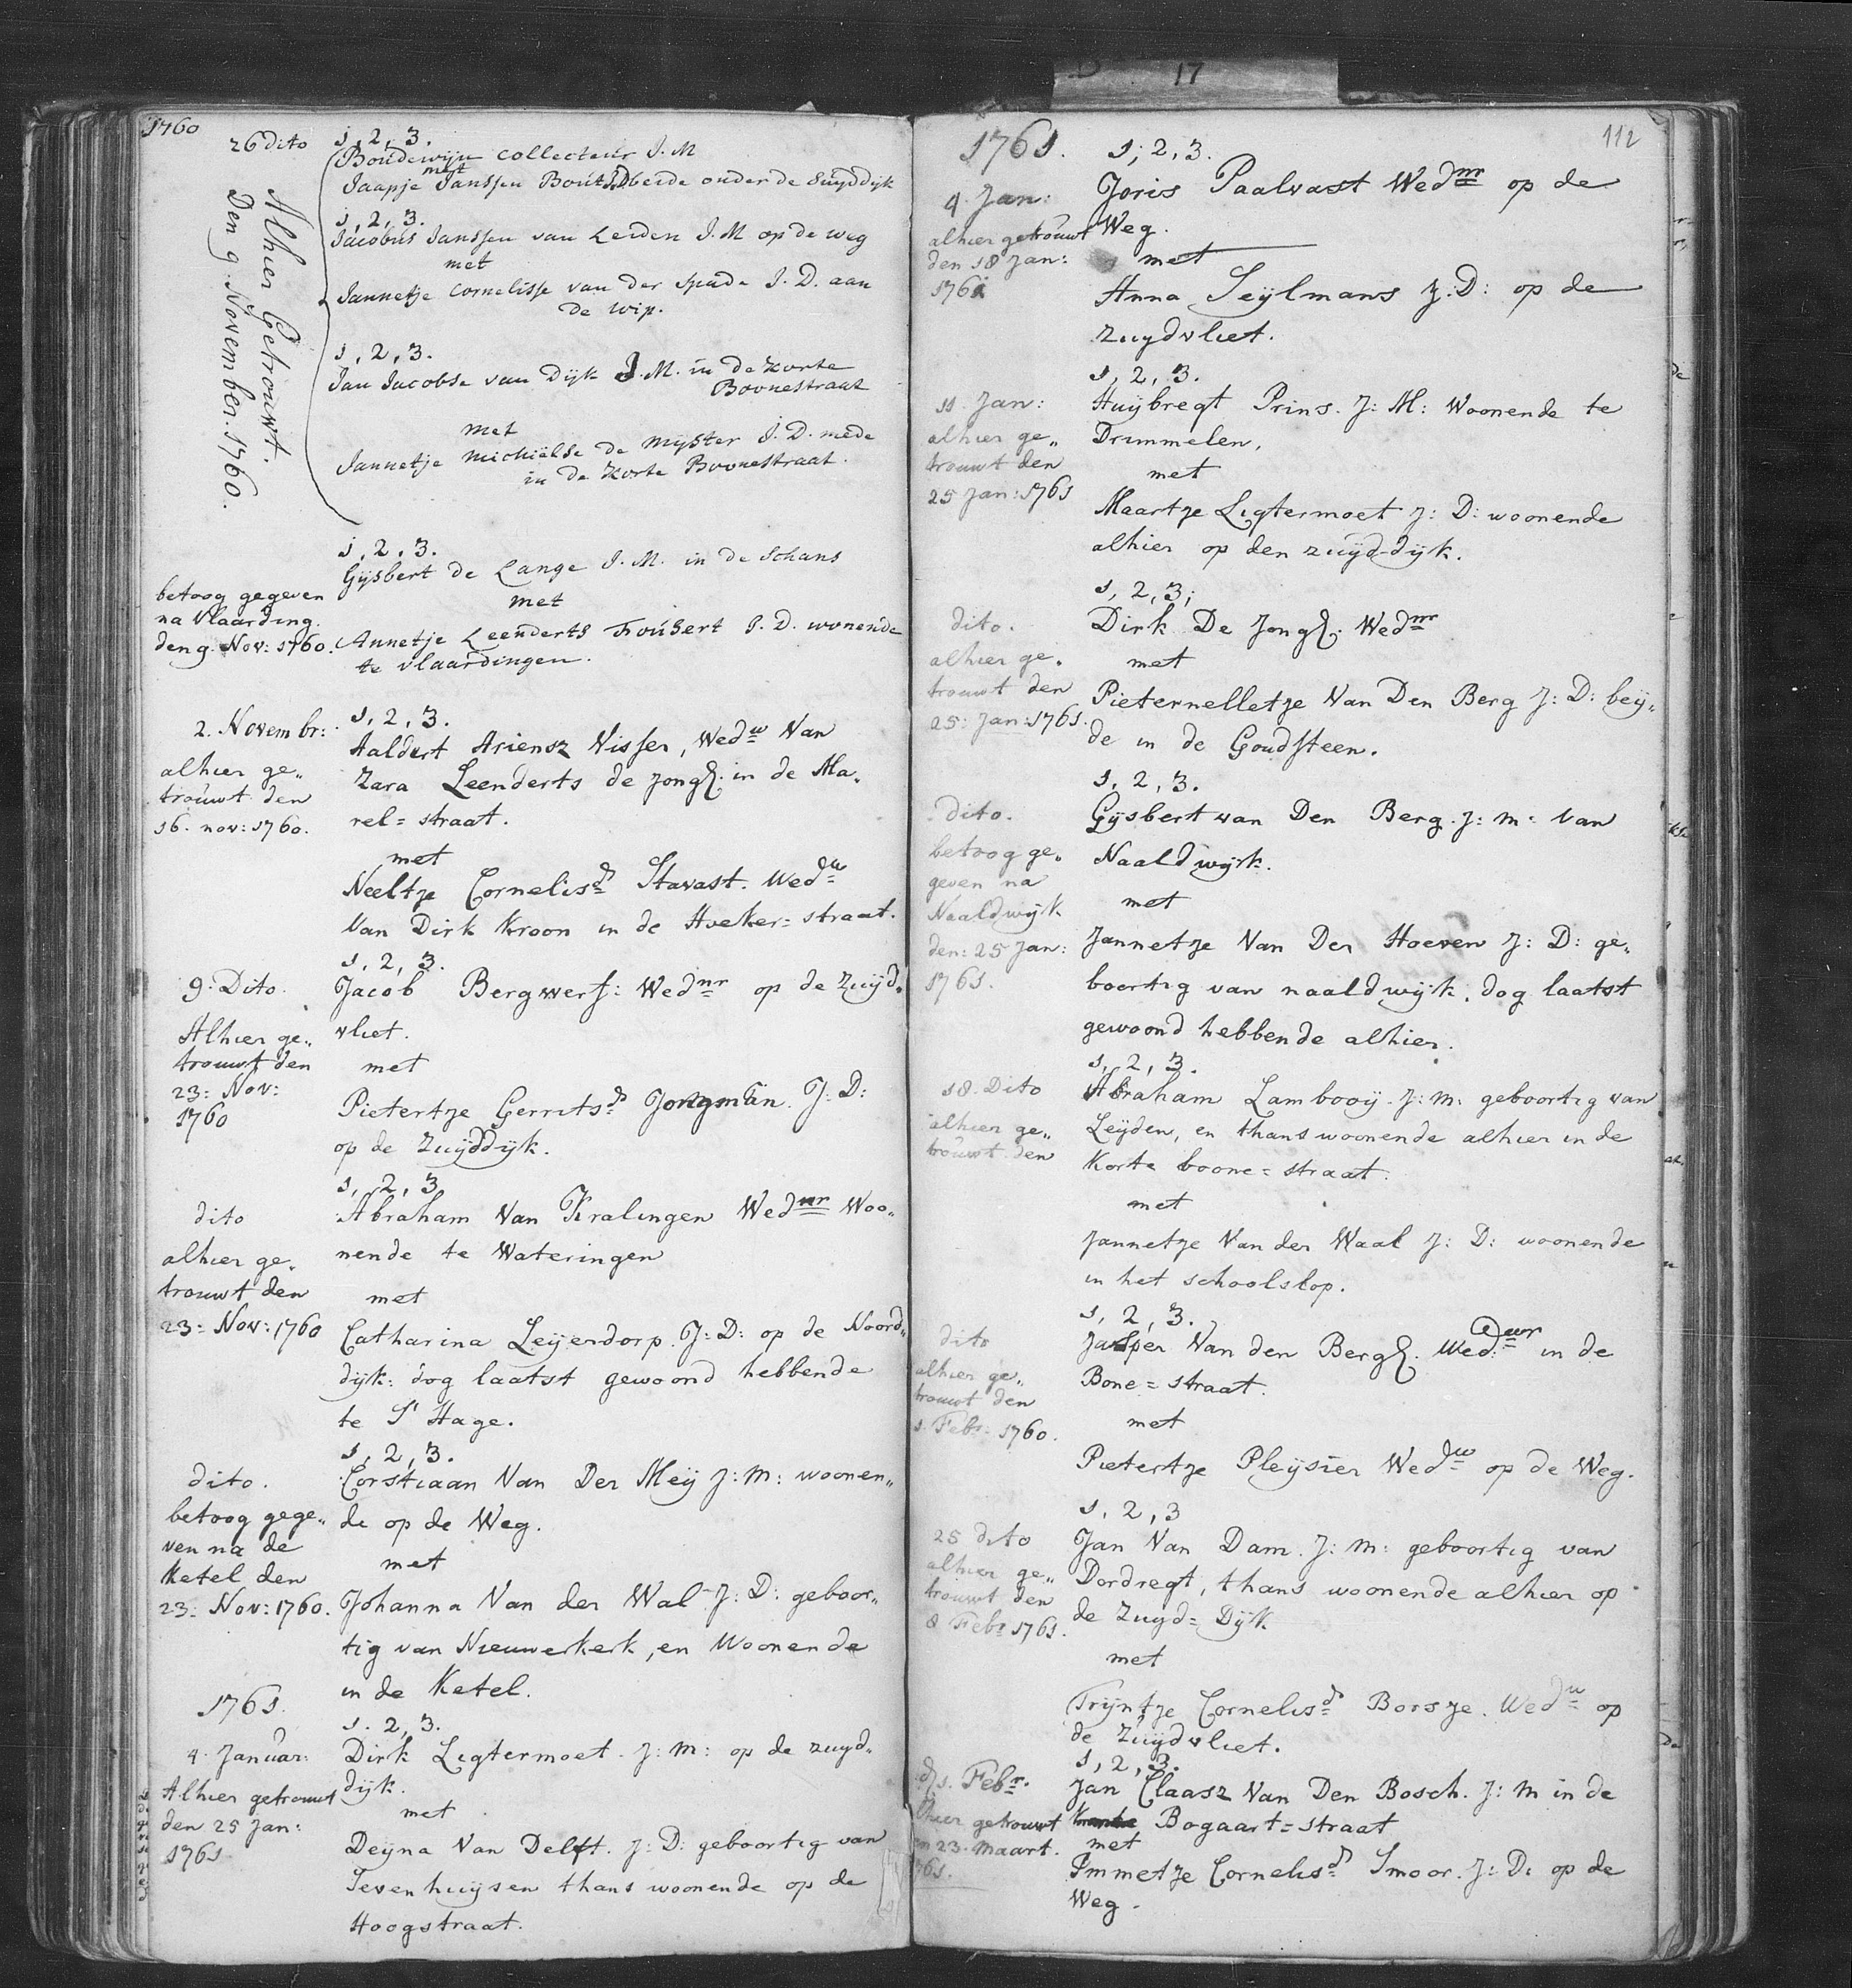 17
1760
26 dito
1, 2, 3.
Boudewijn Collecteur J. M
met
Jaapje Janssen Bout J.D beide onder de Suyddijk
1, 2, 3.
Jacobus Janssen van Leiden J. M op de weg
met
Jannetje Cornelisse van der Spude J. D. aan
de wip.
1, 2, 3.
Jan Jacobse van Dijk J. M. in de korte
Boonestraat
met
Jannetje Michielse de Mijster J. D. mede
in de korte Boonestraat.
Alhier Getrouwt.
Den 9. November. 1760.
1, 2, 3.
Gijsbert de Lange J. M. in de Schans
met
Annetje Leenderts J. D. wonende
te vlaardingen.
betoog gegeven
na Vlaarding.
den 9. Nov: 1760.
2. Novembr:
alhier ge„
trouwt den
16. nov: 1760.
1, 2, 3.
Aaldert Ariensz Visser, Wedw Van
Zara Leenderts de Jong. in de Ma„
rel=straat.
met
Neeltje Cornelisd Stavast. Wedw
Van Dirk Kroon in de Hoeker=straat.
9. Dito.
Alhier ge„
trouwt den
23: Nov:
1760
1, 2, 3.
Jacob Bergwerf: Wednr op de Zuyd„
vliet.
met
Pietertje Gerritsd Jongman. J: D:
op de Zuijddijk.
dito
alhier ge„
trouwt den
23: Nov: 1760
1, 2, 3
Abraham Van Kralingen Wednr Woo„
nende te Wateringen
met
Catharina Leijendorp. J: D: op de Noord„
dijk: dog laatst gewoond hebbende
te S' Hage.
dito.
betoog gege„
ven na de
Ketel den
23: Nov: 1760.
1, 2, 3.
Corstiaan Van Der Meij J: M: woonen„
de op de Weg.
met
Johanna Van der Wal J: D: geboor„
tig van Nieuwerkerk, en Woonende
in de Ketel.
1761.
4. Januar:
Alhier getrouwt
den 25 Jan:
1761
1. 2, 3.
Dirk Ligtermoet. J: M: op de zuyd„
dijk.
met
Deijna Van Delft. J: D: geboortig van
Sevenhuijsen thans woonende op de
Hoogstraat.
112
1761.
4. Jan:
alhier getrouwt
den 18 Jan:
1761
1; 2, 3.
Joris Paalvast Wednr op de
Weg.
met
Anna Seijlmans J: D: op de
Zuydvliet.
11. Jan:
alhier ge„
trouwt den
25 Jan: 1761
1, 2, 3.
Huijbregt Prins. J: M: Woonende te
Drimmelen,
met
Maartje Ligtermoet J: D: woonende
alhier op den zuijd-dijk.
dito.
alhier ge„
trouwt den
25: Jan: 1761.
1, 2, 3;
Dirk De Jong. Wednr
met
Pieternelletje Van Den Berg J: D: beij„
de in de Goudsteen.
dito.
betoog ge„
geven na
Naaldwijk
den: 25 Jan:
1761.
1, 2, 3.
Gijsbert van Den Berg. J: m: van
Naaldwijk.
met
Jannetje Van Der Hoeven J: D: ge„
boortig van naaldwijk, dog laatst
gewoond hebbende alhier.
18. Dito
alhier ge„
trouwt den
1, 2, 3.
Abraham Lambooij. J: m: geboortig van
Leijden, en thans woonende alhier in de
Korte boone=straat.
met
Jannetje Van der Waal J: D: woonende
in het schoolslop.
dito
alhier ge„
trouwt den
1. Febr: 1760.
1, 2, 3.
Jasper Van den Berg. Wedwr in de
Bone=straat.
met
Pietertje Pleijsier Wedw op de Weg.
25 dito
alhier ge„
trouwt den
8 Febr 1761.
1, 2, 3
Jan Van Dam. J: m: geboortig van
Dordregt, thans woonende alhier op
de Zuyd=Dijk
met
Trijntje Cornelisd Borsje. Wedw op
de Zuijdvliet.
d. 1. Febr.
alhier getrouwt
den 23. Maart.
1761.
1, 2, 3.
Jan Claasz Van Den Bosch. J: M in de
Bogaart=straat
met
Immetje Cornelisd Smoor. J: D: op de
Weg.